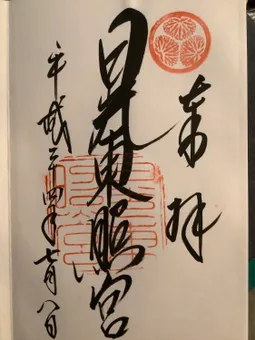 奉拝
日光東照宮
平成二十四年七月八日